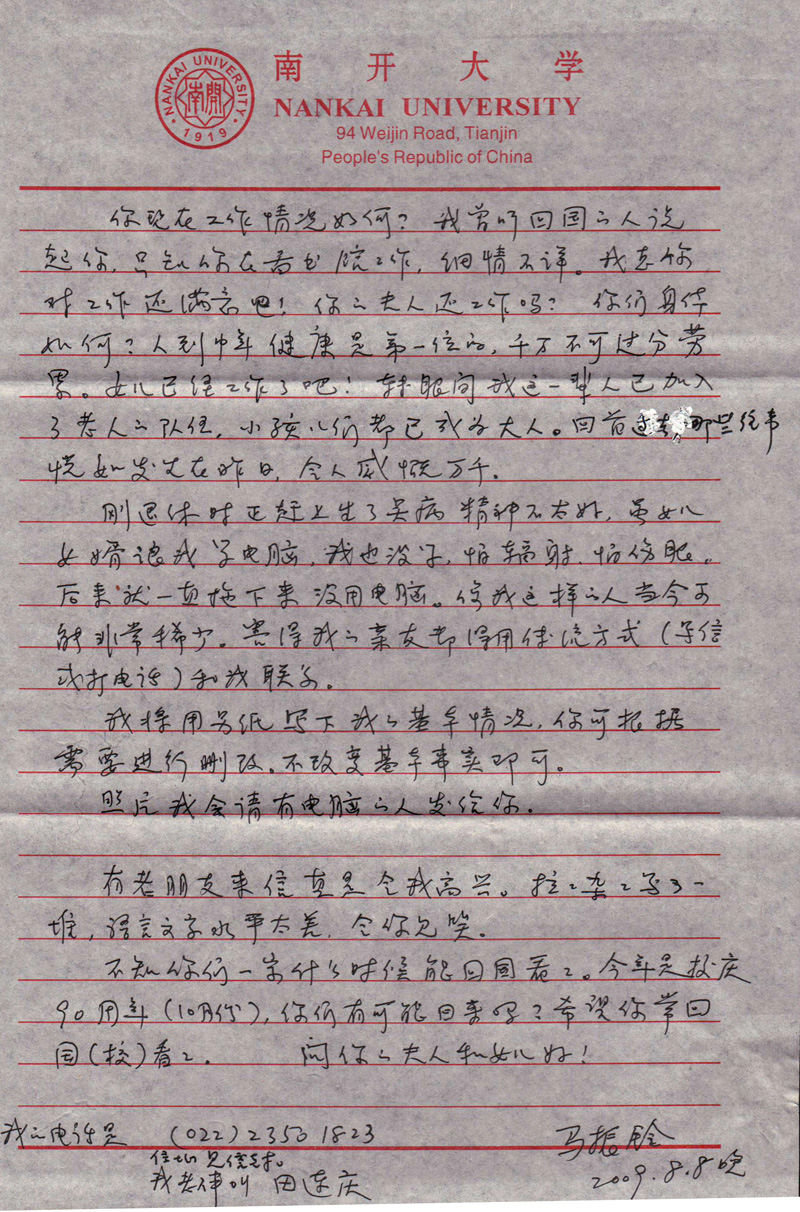 NANKAI UNIVERSITY
南開
1919
南开大学
NANKAI UNIVERSITY
94 Weijin Road, Tianjin
People's Republic of China
你现在工作情况如何？我曾听回国的人说
起你，只知你在书院工作，细情不详。我想你
对工作还满意吧！你的夫人还工作吗？你们身体
如何？人到中年健康是第一位的，千万不可过分劳
累。女儿已经工作了吧！转眼间我这一辈人已加入
了老人的队伍，小孩儿们都已成为大人。回首过去那些往事
恍如发生在昨日，令人感慨万千。
刚退休时正赶上生了点病精神不太好，虽女儿
女婿让我学电脑，我也没学，怕辐射、怕伤眼。
后来就一直拖下来没用电脑。像我这样的人当今可
能非常稀少。害得我的亲友都得用传统方式（写信
或打电话）和我联系。
我将用另纸写下我的基本情况，你可根据
需要进行删改。不改变基本事实即可。
然后我会请有电脑的人发给你。
有老朋友来信真是令我高兴。拉拉杂杂写了一
堆，语言文字水平太差，令你见笑。
不知你们一家什么时候能回国看看。今年是校庆
90周年（10月份），你们有可能回来吗？希望你常回
国（校）看看。 问你的夫人和女儿好！
我的电话是 (022) 2350 1823
住址见信封。
我老伴叫 田连庆
马振
2009.8.8晚